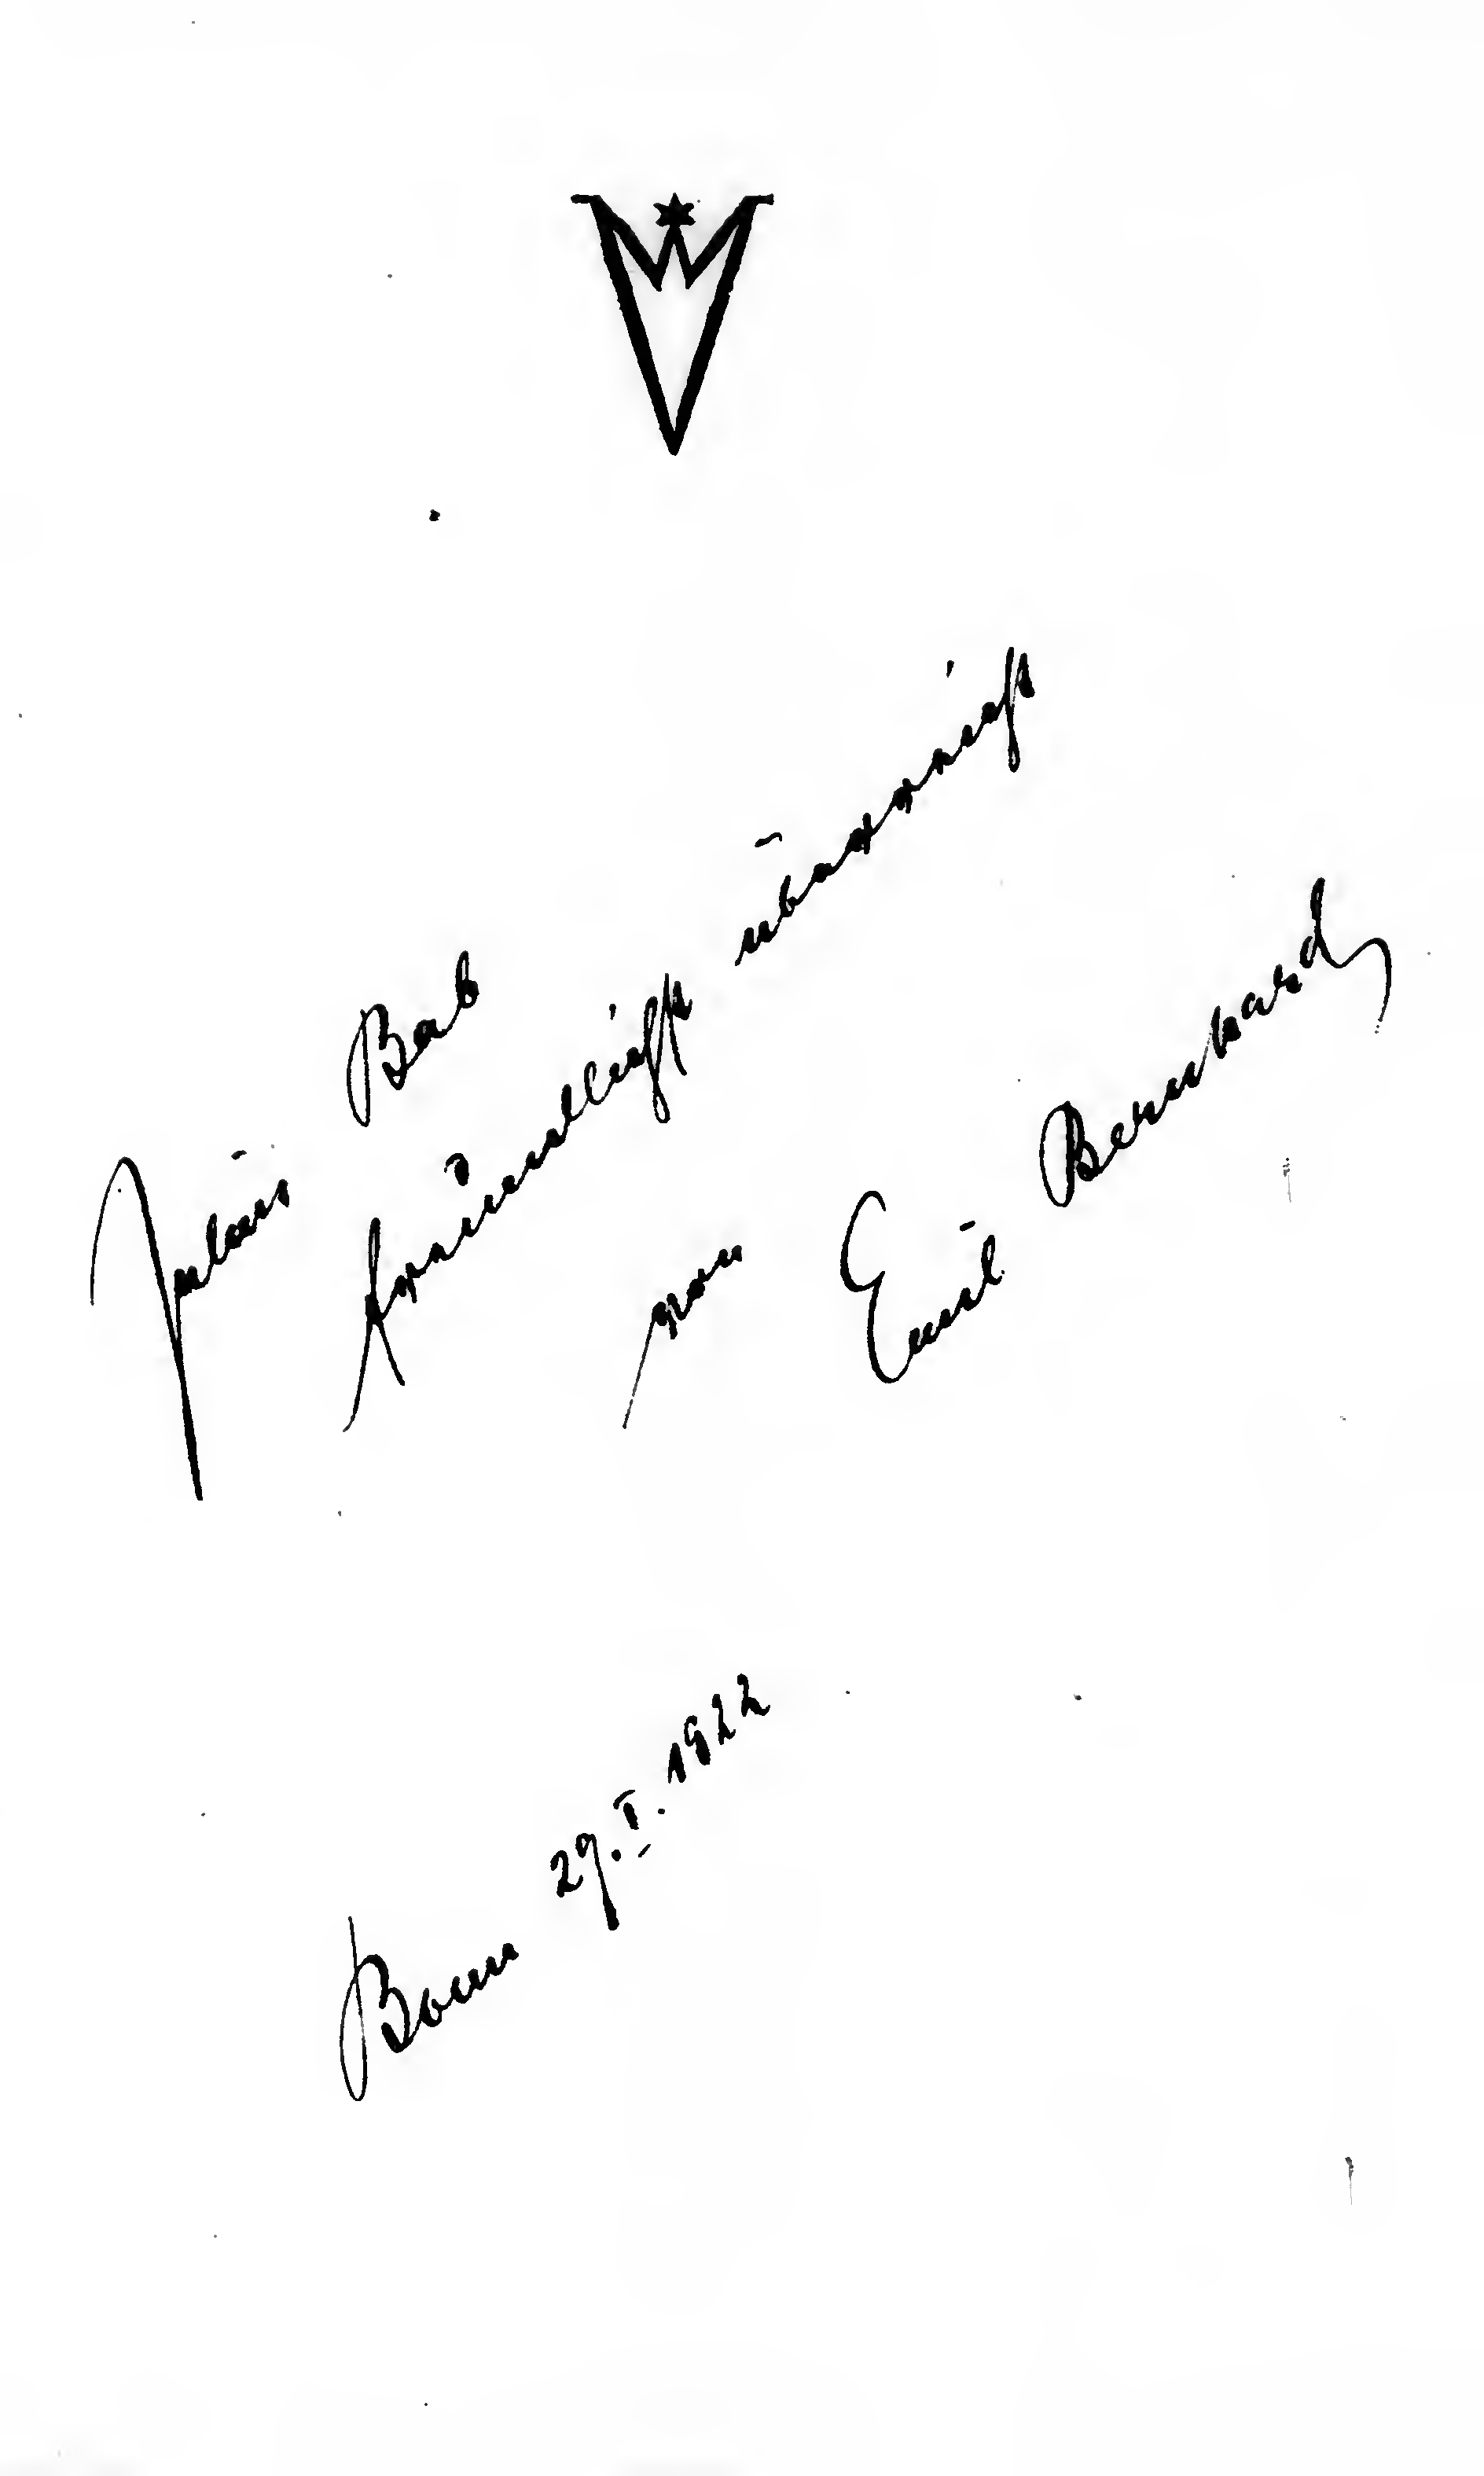 Julius Bab
freundlichst überreicht
von Emil Bernhard
Bonn 29. I. 1922